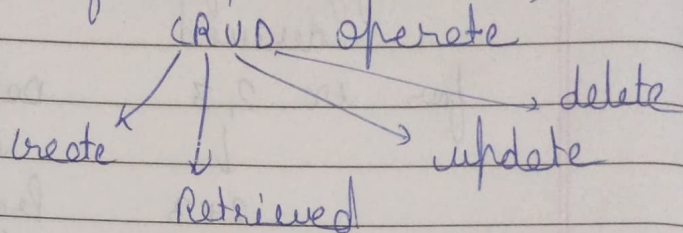 CRUD operate
delete
create
update
Retrieved